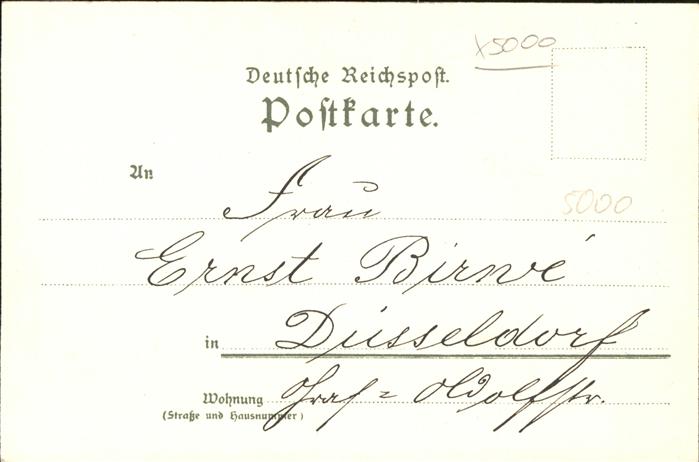 x5000
Deutsche Reichspost.
Postkarte.
An
Frau
5000
Ernst Birwé
in Düsseldorf
Wohnung Graf=Adolfstr.
(Straße und Hausnummer)